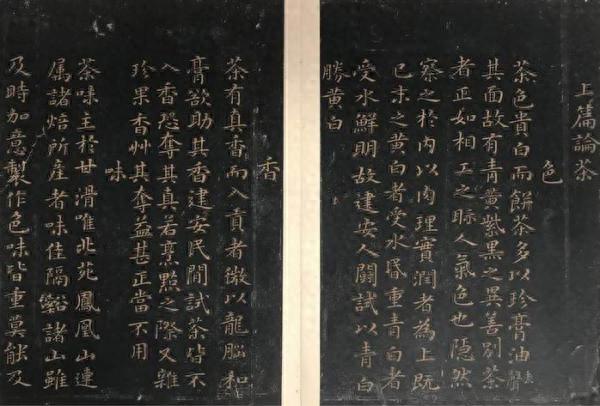 上篇論茶
色
茶色貴白而餅茶多以珍膏油去聲
其面故有青黃紫黑之異善別茶
者正如相工之眎人氣色也隱然
察之於內以肉理實潤者為上既
已末之黃白者受水昬重青白者
受水鮮明故建安人鬪試以青白
勝黃白
香
茶有真香而入貢者微以龍腦和
膏欲助其香建安民間試茶皆不
入香恐奪其真若烹點之際又雜
珍果香艸其奪益甚正當不用
味
茶味主於甘滑唯北苑鳳凰山連
属諸焙所産者味佳隔谿諸山雖
及時加意製作色味皆重莫能及